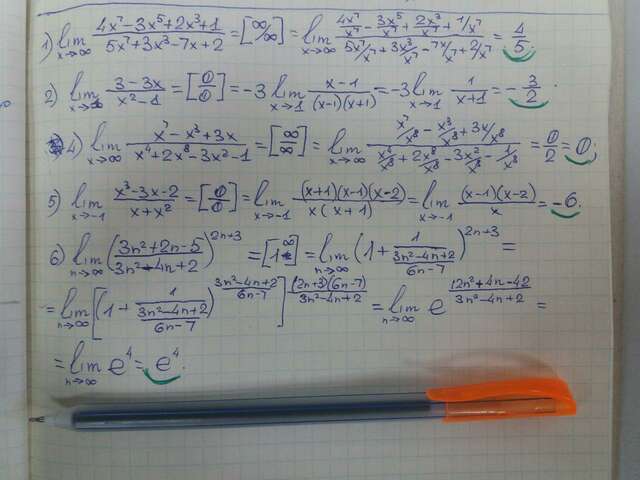 1) lim x→∞ (4x⁷-3x⁵+2x³+1)/(5x⁷+3x³-7x+2) = [∞/∞] = lim x→∞ (4x⁷/x⁷ - 3x⁵/x⁷ + 2x³/x⁷ + 1/x⁷)/(5x⁷/x⁷ + 3x³/x⁷ - 7x/x⁷ + 2/x⁷) = 4/5.
2) lim x→1 (3-3x)/(x²-1) = [0/0] = -3 lim x→1 (x-1)/((x-1)(x+1)) = -3 lim x→1 1/(x+1) = -3/2.
4) lim x→∞ (x⁷-x³+3x)/(x⁴+2x⁸-3x²-1) = [∞/∞] = lim x→∞ (x⁷/x⁸ - x³/x⁸ + 3x/x⁸)/(x⁴/x⁸ + 2x⁸/x⁸ - 3x²/x⁸ - 1/x⁸) = 0/2 = 0;
5) lim x→-1 (x³-3x-2)/(x+x²) = [0/0] = lim x→-1 ((x+1)(x-1)(x-2))/(x(x+1)) = lim x→-1 ((x-1)(x-2))/x = -6.
6) lim n→∞ ((3n²+2n-5)/(3n²-4n+2))^(2n+3) = [1^∞] = lim n→∞ (1 + 1/((3n²-4n+2)/(6n-7)))^(2n+3) =
= lim n→∞ [(1 + 1/((3n²-4n+2)/(6n-7)))^((3n²-4n+2)/(6n-7))]^((2n+3)(6n-7)/(3n²-4n+2)) = lim n→∞ e^((12n²+4n-42)/(3n²-4n+2)) =
= lim n→∞ e⁴ = e⁴.